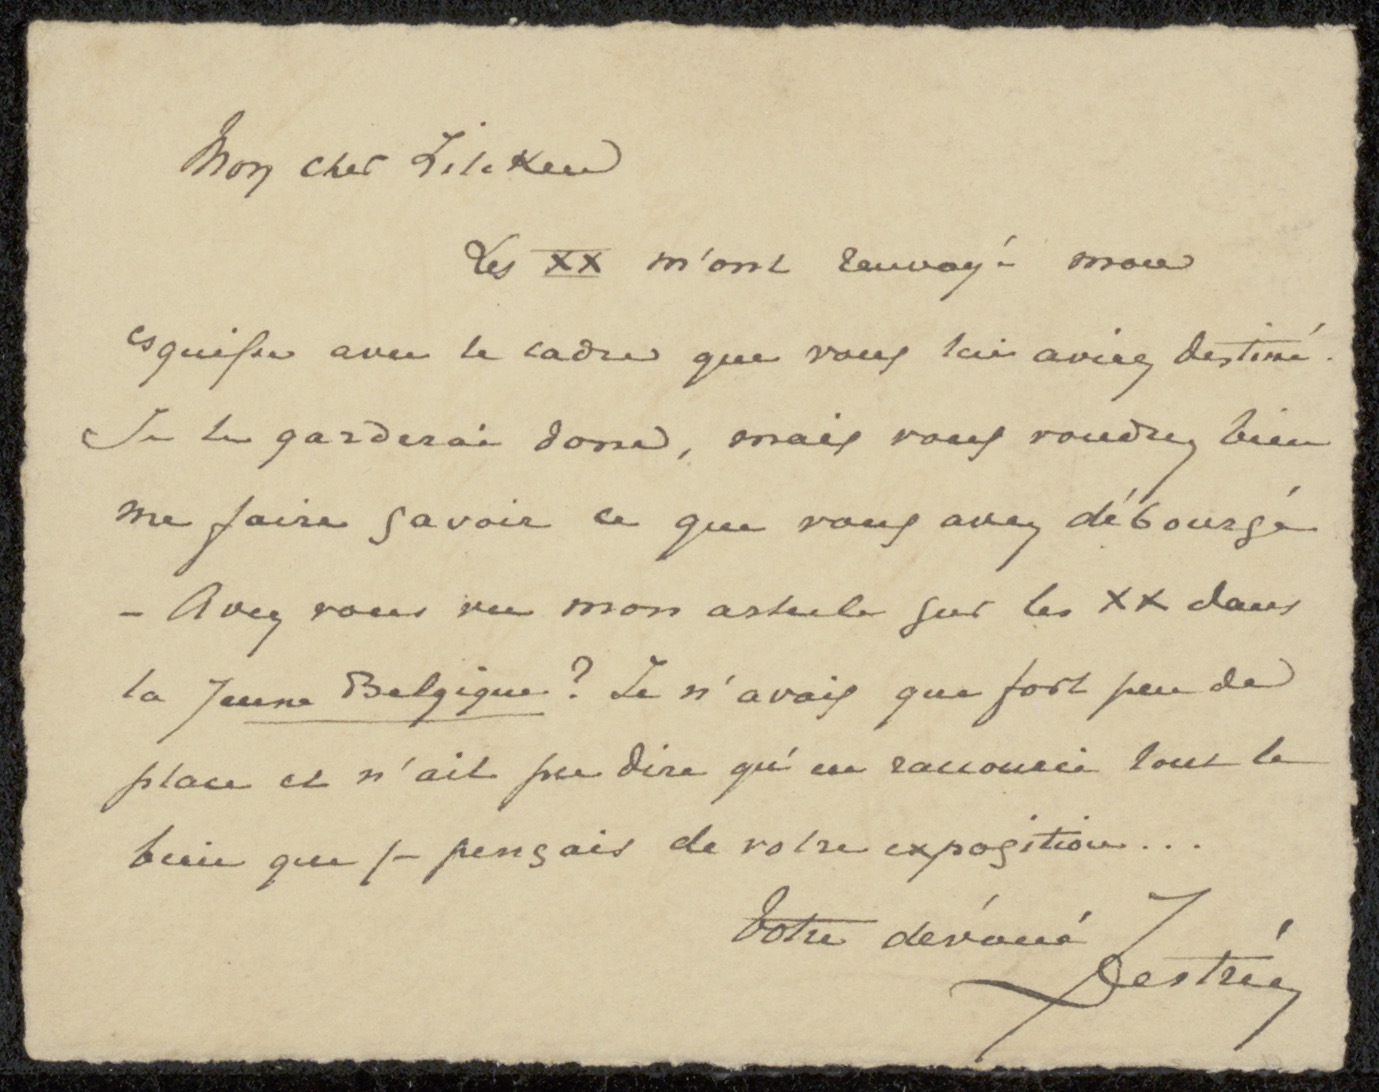 Mon cher Zilcken
Les XX m'ont renvoyé mon
esquisse avec le cadre que vous lui aviez destiné.
Je le garderai donc, mais vous voudrez bien
me faire savoir ce que vous avez déboursé
- Avez vous vu mon article sur les XX dans
la Jeune Belgique? Je n'avais que fort peu de
place et n'ait pu dire qu'en raccourci tout le
bien que je pensais de votre exposition...
Votre dévoué Destrée